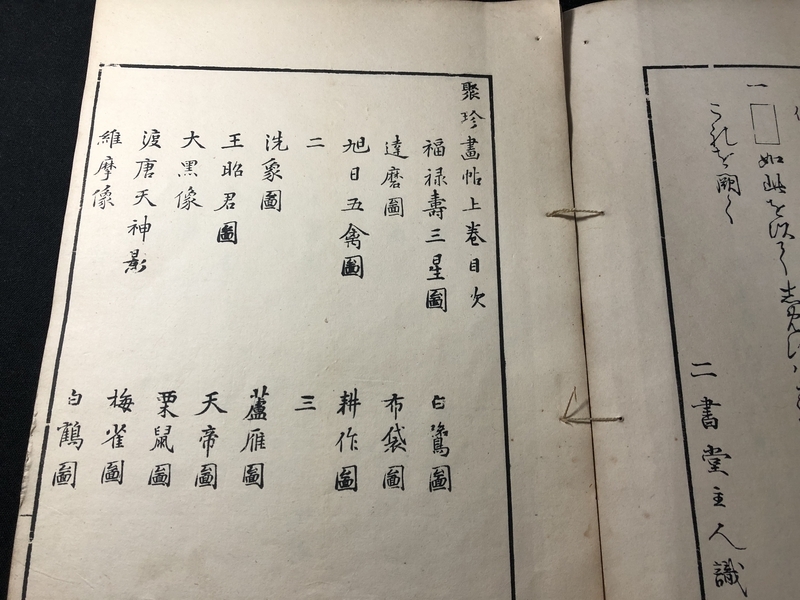 一 □ 如此を
これを闕く
二書堂主人識
聚珍畫帖上巻目次
福禄壽三星圖
白鷺圖
達磨圖
布袋圖
旭日五禽圖
耕作圖
二
三
洗象圖
蘆雁圖
王昭君圖
天帝圖
大黒像
栗鼠圖
渡唐天神影
梅雀圖
維摩像
白鶴圖